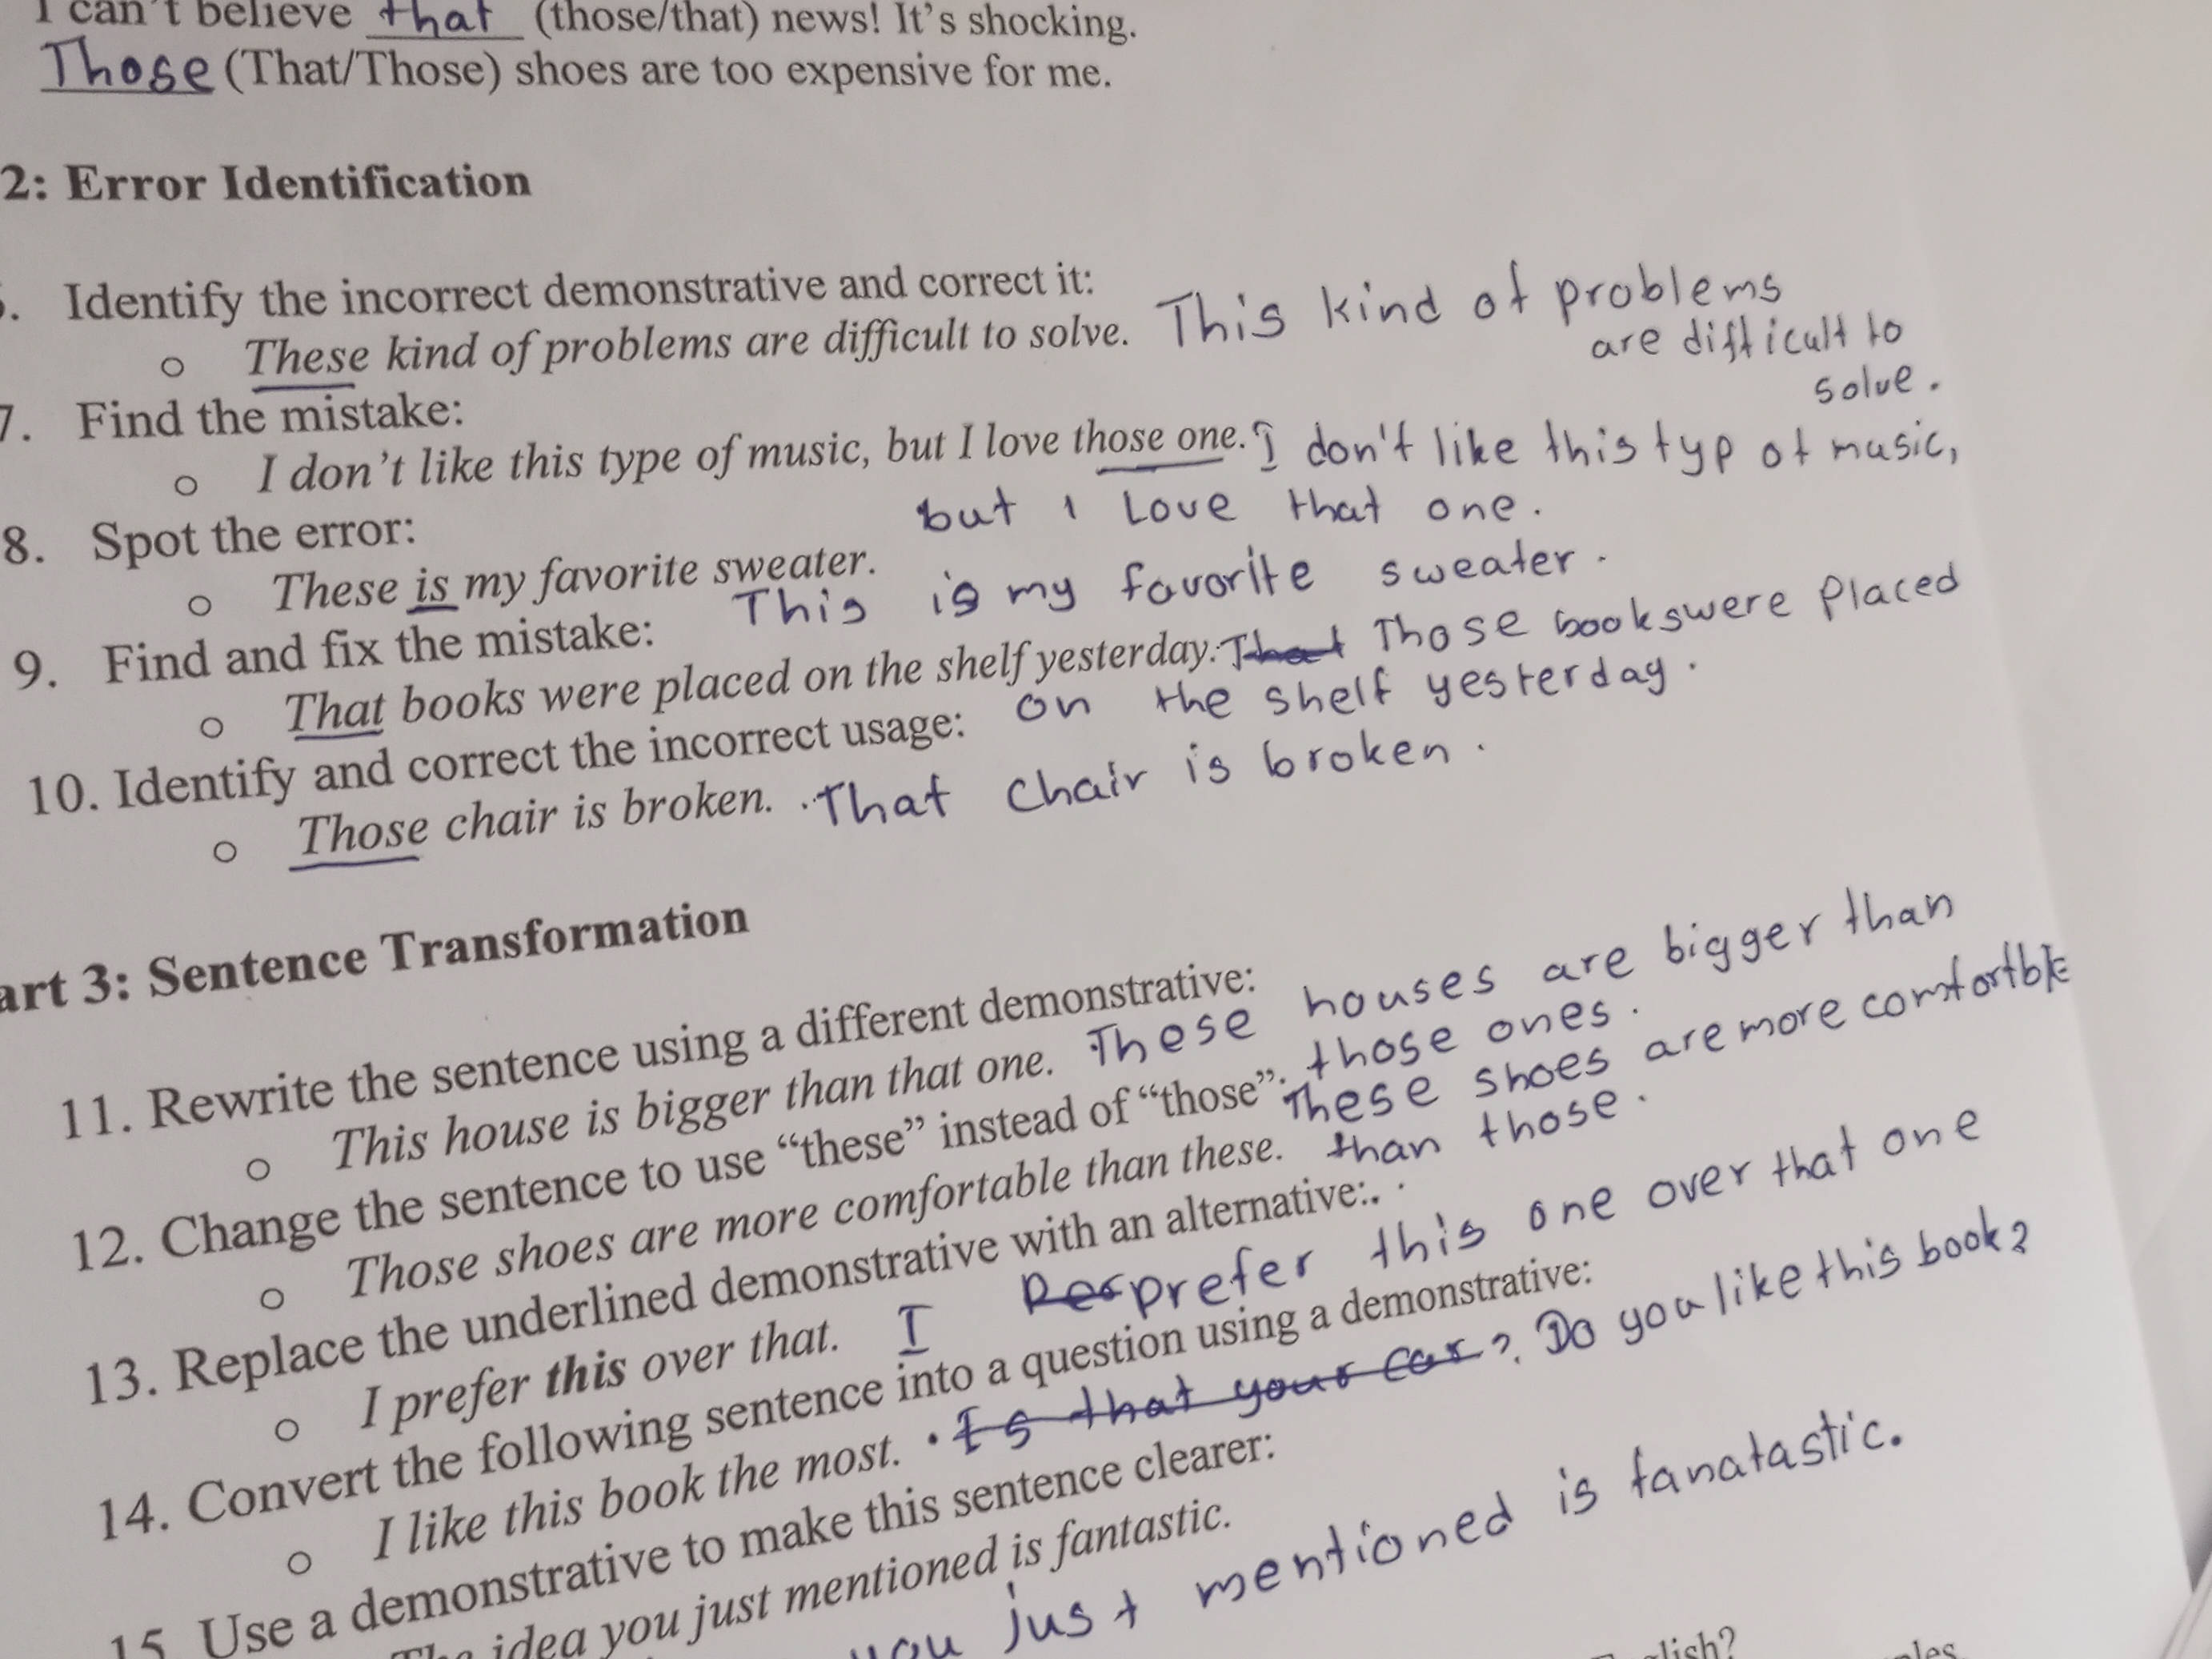 I can't believe that (those/that) news! It's shocking.
Those (That/Those) shoes are too expensive for me.
2: Error Identification
. Identify the incorrect demonstrative and correct it:
These kind of problems are difficult to solve. This kind of problems
are difficult to
solve.
7. Find the mistake:
I don't like this type of music, but I love those one. I don't like this typ of music,
but I Love that one.
8. Spot the error:
These is my favorite sweater. This is my favorite sweater.
9. Find and fix the mistake:
That books were placed on the shelf yesterday. That Those books were placed
on the shelf yesterday.
10. Identify and correct the incorrect usage:
Those chair is broken. That chair is broken.
art 3: Sentence Transformation
11. Rewrite the sentence using a different demonstrative:
This house is bigger than that one. These houses are bigger than
those ones.
12. Change the sentence to use “these” instead of “those”:
Those shoes are more comfortable than these. These shoes are more comfortble
than those.
13. Replace the underlined demonstrative with an alternative:.
I prefer this over that. I prefer this one over that one
14. Convert the following sentence into a question using a demonstrative:
I like this book the most. Is that your car?. Do you like this book?
15 Use a demonstrative to make this sentence clearer:
The idea you just mentioned is fantastic.
you just mentioned is fanatastic.